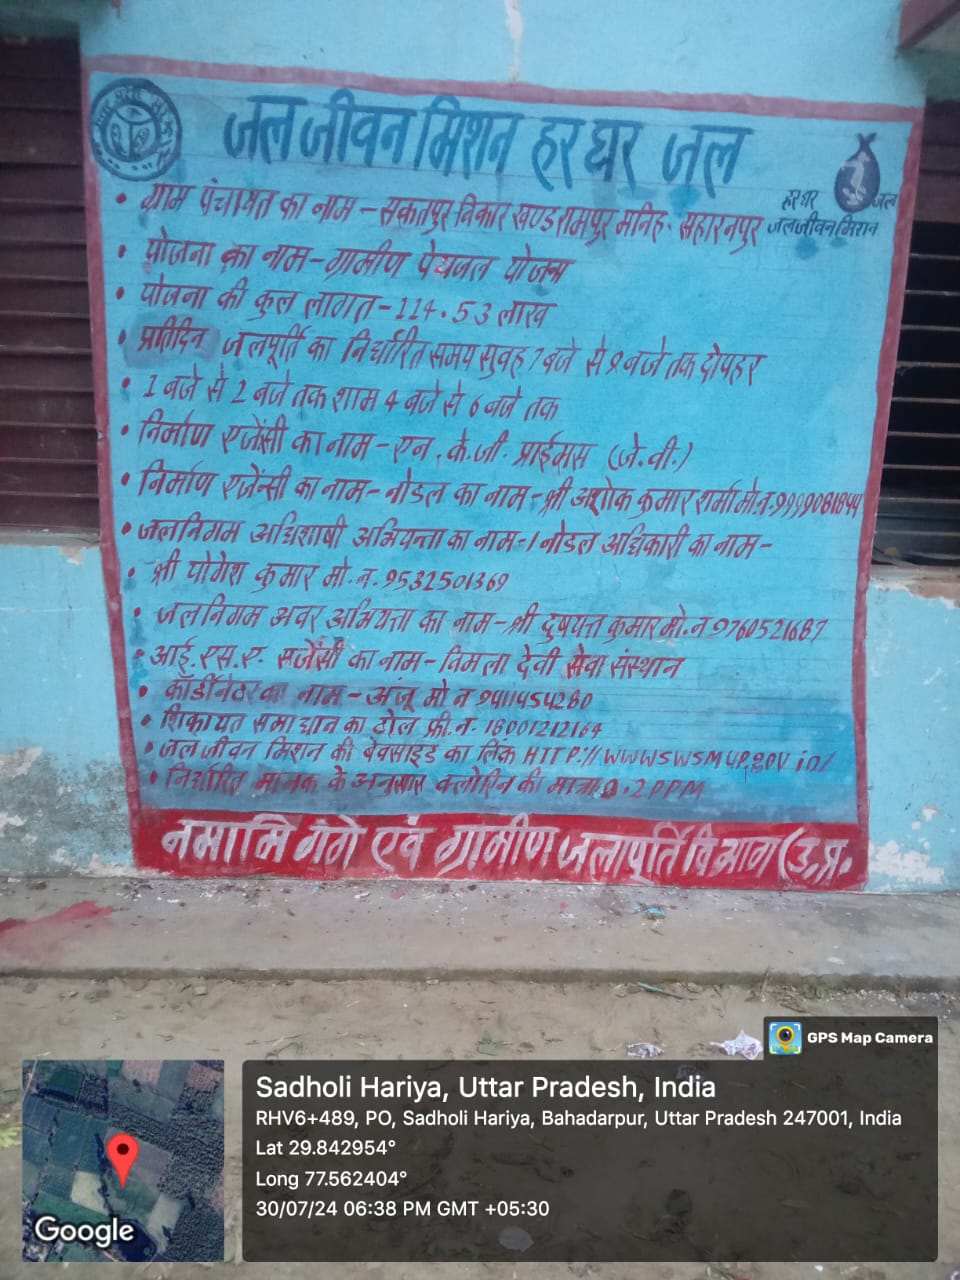 जल जीवन मिशन हर घर जल
हर घर जल
जल जीवन मिशन
• ग्राम पंचायत का नाम - सकतपुर विकार खण्ड रामपुर मनिह. सहारनपुर
• योजना का नाम - ग्रामीण पेयजल योजना
• योजना की कुल लागत - 114.53 लाख
• प्रतिदिन जलपूर्ति का निर्धारित समय सुवह 7 बजे से 9 बजे तक दोपहर
• 1 बजे से 2 बजे तक शाम 4 बजे से 6 बजे तक
• निर्माण एजेंसी का नाम - एन. के.जी. प्राईमस (जे.वी.)
• निर्माण एजेन्सी का नाम - नोडल का नाम - श्री अशोक कुमार शर्मा मो.न.
• जलनिगम अधिशाषी अभियन्ता का नाम - / नोडल अधिकारी का नाम -
• श्री योगेश कुमार मो. न. 9532501369
• जलनिगम अवर अभियत्ता का नाम - श्री दुषयत्त कुमार मो.न 9760521687
• आई.एस.ए. एजेंसी का नाम - विमला देवी सेवा संस्थान
• कॉर्डीनेटर का नाम - अंजू मो न 9411454280
• शिकायत समाधान का टोल फ्री.न. 18001212164
• जल जीवन मिशन की बेवसाइड का लिंक HTTP://WWWSWSMUP.gov in/
• निर्धारित मानक के अनुसार क्लोरिन की मात्रा 0.2 PPM
नमामि गंगे एवं ग्रामीण जलापूर्ति विभाग (उ.प्र.
GPS Map Camera
Sadholi Hariya, Uttar Pradesh, India
RHV6+489, PO, Sadholi Hariya, Bahadarpur, Uttar Pradesh 247001, India
Lat 29.842954°
Long 77.562404°
30/07/24 06:38 PM GMT +05:30
Google